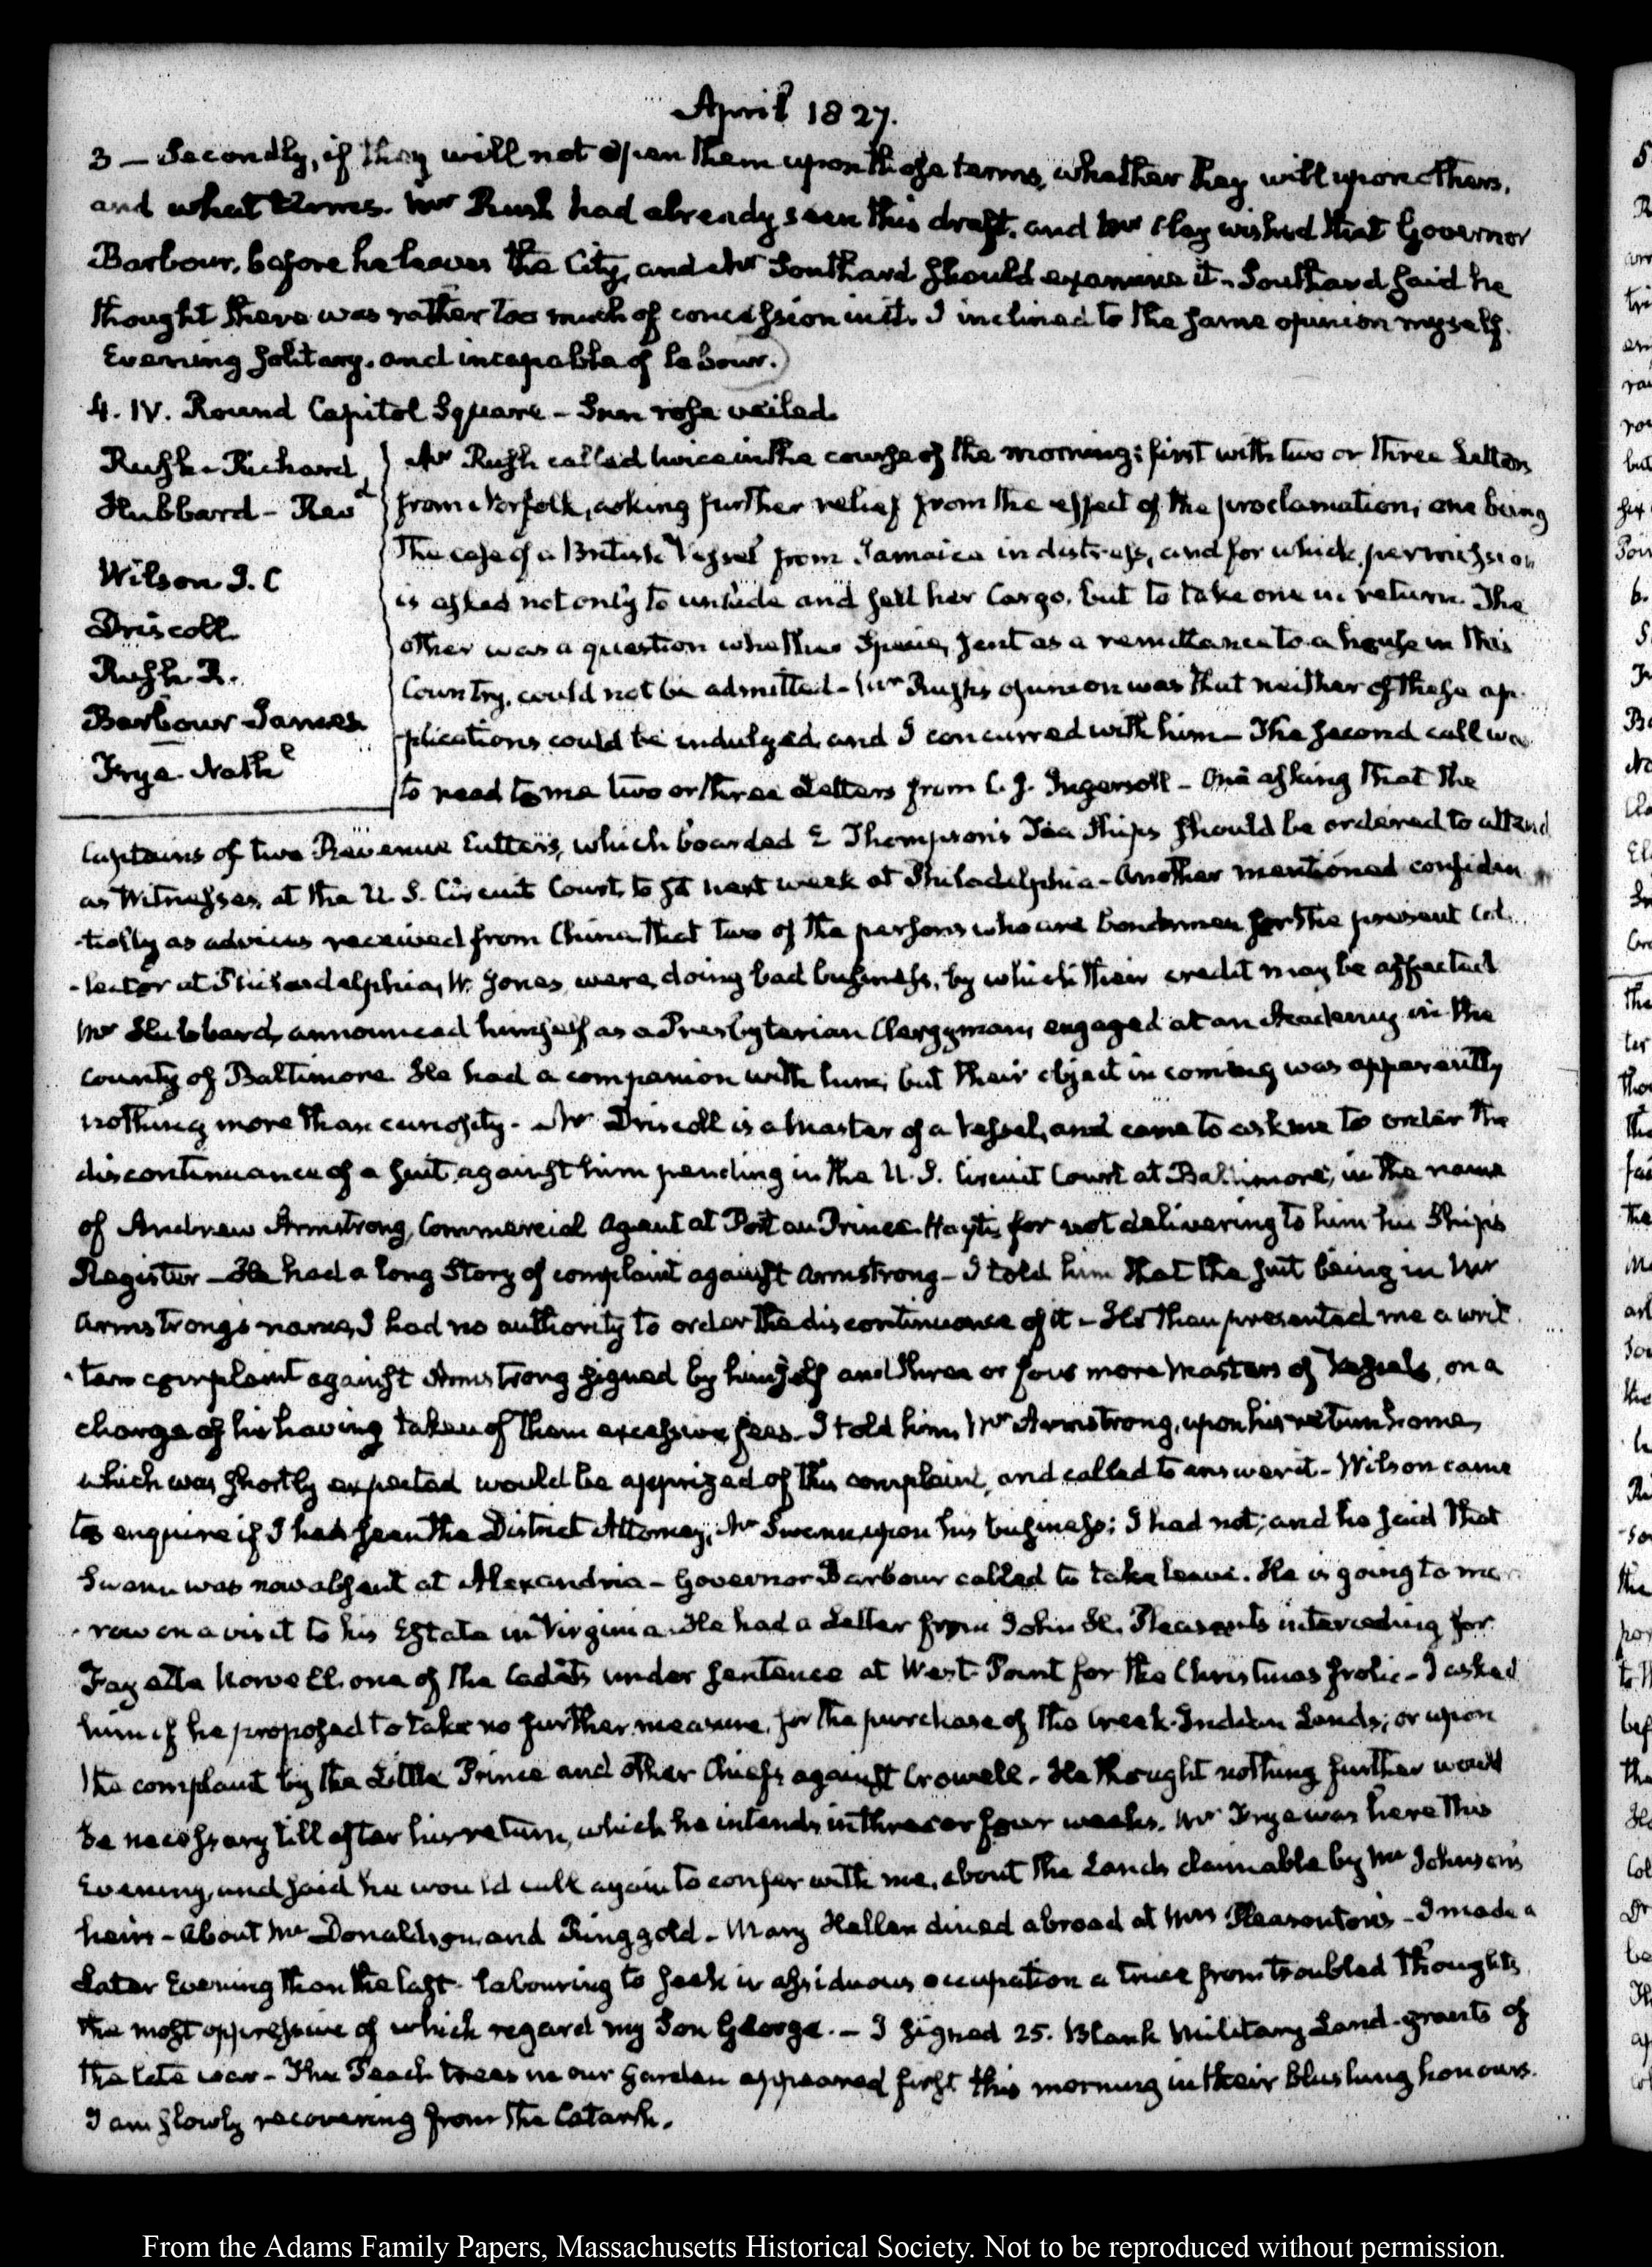 April 1827.
3 — Secondly, if they will not open them upon those terms, whether they will upon others,
and what terms. Mr Rush had already seen this draft, and Mr Clay wished that Governor
Barbour, before he leaves the City, and Mr Southard should examine it. Southard said he
thought there was rather too much of concession in it. I inclined to the same opinion myself.
Evening solitary, and incapable of labour.
4. IV. Round Capitol Square - Sun rose veiled.
Rush - Richard
Hubbard - Revd
Wilson J. C
Driscoll
Rush R.
Barbour James
Frye Nathl
Mr Rush called twice in the course of the morning; first with two or three Letters
from Norfolk, asking further relief from the effect of the proclamation; one being
the case of a British Vessel from Jamaica in distress, and for which permission
is asked not only to unlade and sell her Cargo, but to take one in return. The
other was a question whether Specie, sent as a remittance to a house in this
Country, could not be admitted - Mr Rush's opinion was that neither of these ap-
-plications could be indulged, and I concurred with him - The second call was
to read to me two or three Letters from C. J. Ingersoll - One asking that the
Captains of two Revenue Cutters, which boarded E Thompson's Tea Ships should be ordered to attend
as Witnesses, at the U. S. Circuit Court, to sit next week at Philadelphia - Another mentioned confiden
-tially as advices received from China that two of the persons who are bondsmen for the present Col-
-lector at Philadelphia, W. Jones, were doing bad business, by which their credit may be affected
Mr Hubbard, announced himself as a Presbyterian Clergyman, engaged at an Academy in the
County of Baltimore. He had a companion with him, but their object in coming was apparently
nothing more than curiosity - Mr Driscoll is a Master of a Vessel, and came to ask me to order the
discontinuance of a suit against him pending in the U. S. Circuit Court at Baltimore, in the name
of Andrew Armstrong, Commercial Agent at Port au Prince Hayti, for not delivering to him his Ship's
Register - He had a long Story of complaint against Armstrong - I told him that the suit being in Mr
Armstrong's name, I had no authority to order the discontinuance of it - He then presented me a writ
-ten complaint against Armstrong signed by himself and three or four more Masters of Vessels, on a
charge of his having taken of them excessive fees - I told him, Mr Armstrong, upon his return home,
which was shortly expected would be apprized of this complaint, and called to answer it - Wilson came
to enquire if I had seen the District Attorney, Mr Swann, upon his business; I had not; and he said that
Swann was now absent at Alexandria - Governor Barbour called to take leave. He is going to mor
-row on a visit to his Estate in Virginia. He had a Letter from John H. Pleasants interceding for
Fayette Norvell, one of the Cadets under sentence at West-Point for the Christmas frolic - I asked
him if he proposed to take no further measure, for the purchase of the Creek-Indian Lands; or upon
the complaint by the Little Prince and other Chiefs against Crowell - He thought nothing further would
be necessary till after his return, which he intends in three or four weeks. Mr Frye was here this
Evening, and said he would call again to confer with me, about the Lands claimable by Mr Johnson's
heirs - About Mr Donaldson, and Ringgold - Mary Hellen dined abroad at Mrs Pleasonton's - I made a
Later Evening than the last - labouring to seek in assiduous occupation a truce from troubled thoughts,
the most oppressive of which regard my Son George. - I signed 25. Blank Military Land-grants of
the late war - The Peach trees in our Garden appeared first this morning in their blushing honours.
I am slowly recovering from the Catarrh.
From the Adams Family Papers, Massachusetts Historical Society. Not to be reproduced without permission.